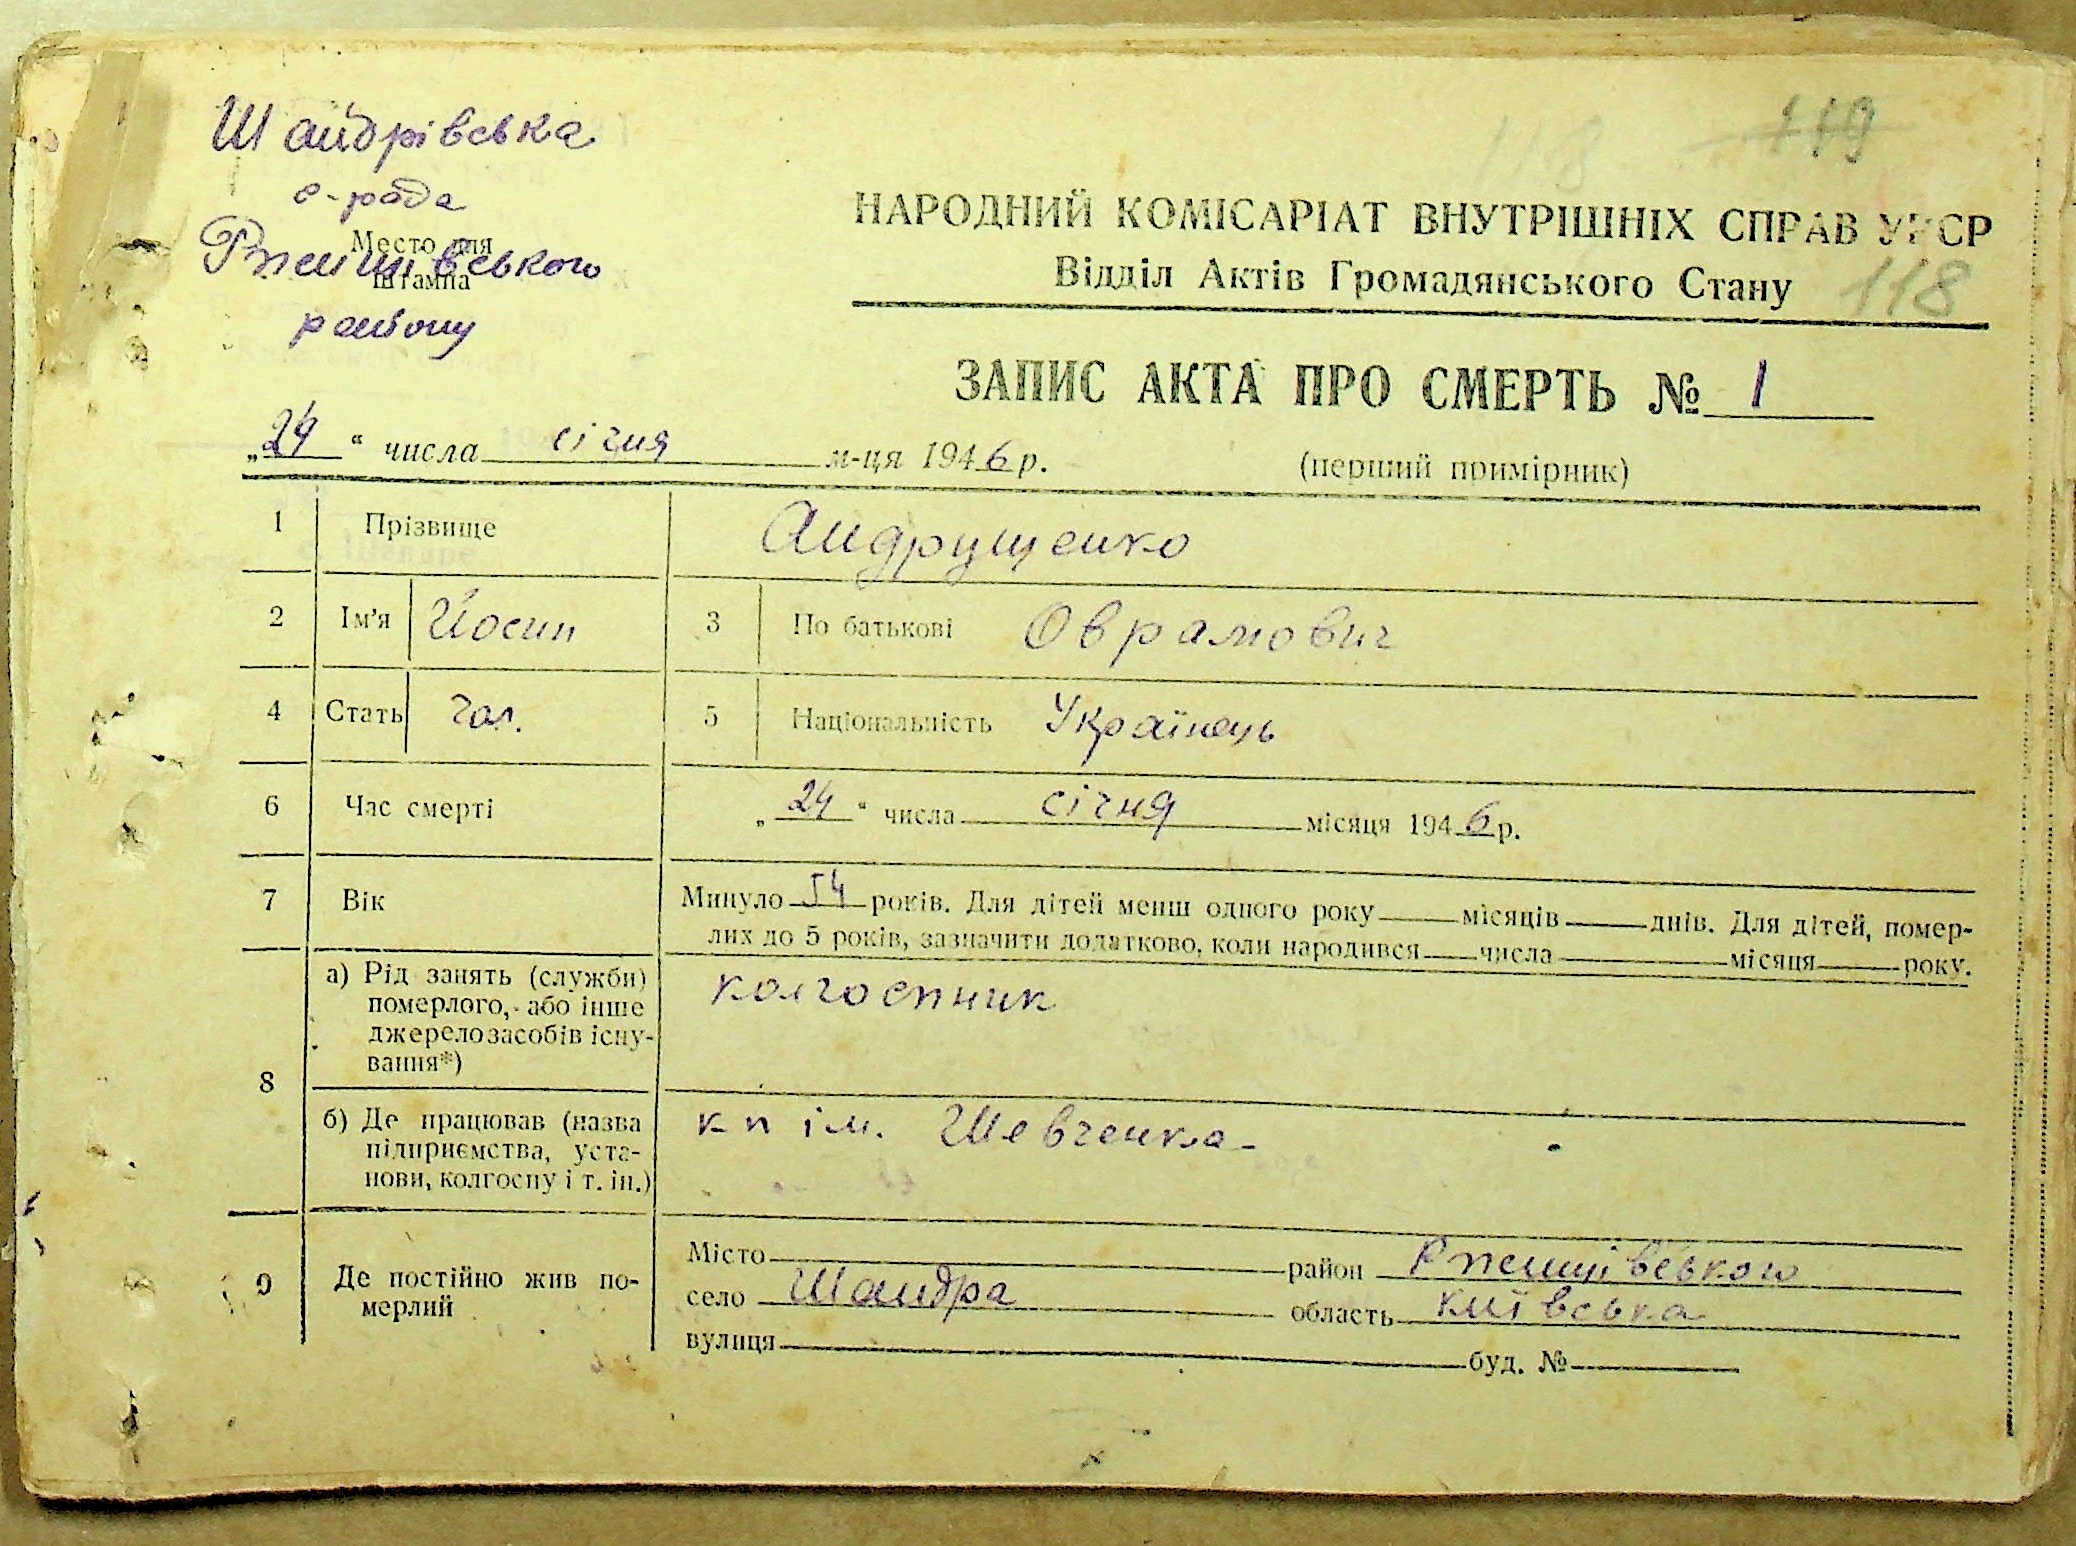 Шандрівська
с-рада
Место для
штампа
Ржищівського
району
119
118
НАРОДНИЙ КОМІСАРІАТ ВНУТРІШНІХ СПРАВ УРСР
Відділ Актів Громадянського Стану
118
ЗАПИС АКТА ПРО СМЕРТЬ № 1
„24“ числа січня м-ця 1946 р.
(перший примірник)
1 Прізвище Андрущенко
2 Ім'я Йосип 3 По батькові Оврамович
4 Стать чол. 5 Національність Українець
6 Час смерті „24“ числа січня місяця 1946 р.
7 Вік Минуло 54 років. Для дітей менш одного року місяців днів. Для дітей, помер-
лих до 5 років, зазначити додатково, коли народився числа місяця року.
8
а) Рід занять (служби)
померлого, або інше
джерело засобів існу-
вання*)
колгоспник
б) Де працював (назва
підприємства, уста-
нови, колгоспу і т. ін.)
кп ім. Шевченка
9 Де постійно жив по-
мерлий
Місто район Ржищівського
село Шандра область київська
вулиця буд. №